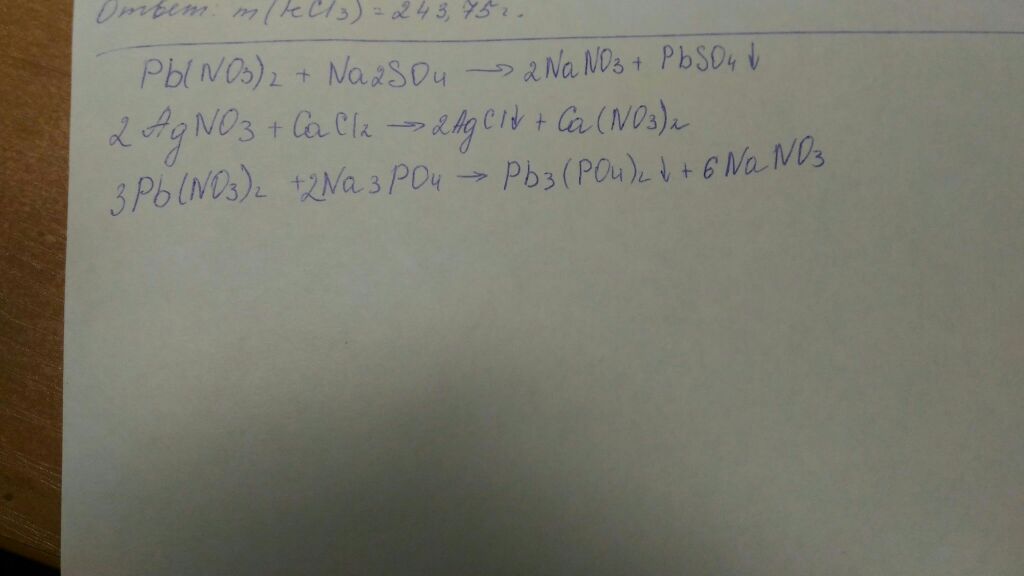 Ответ: m(FeCl3) = 243,75 г.
Pb(NO3)2 + Na2SO4 → 2NaNO3 + PbSO4↓
2AgNO3 + CaCl2 → 2AgCl↓ + Ca(NO3)2
3Pb(NO3)2 + 2Na3PO4 → Pb3(PO4)2↓ + 6NaNO3